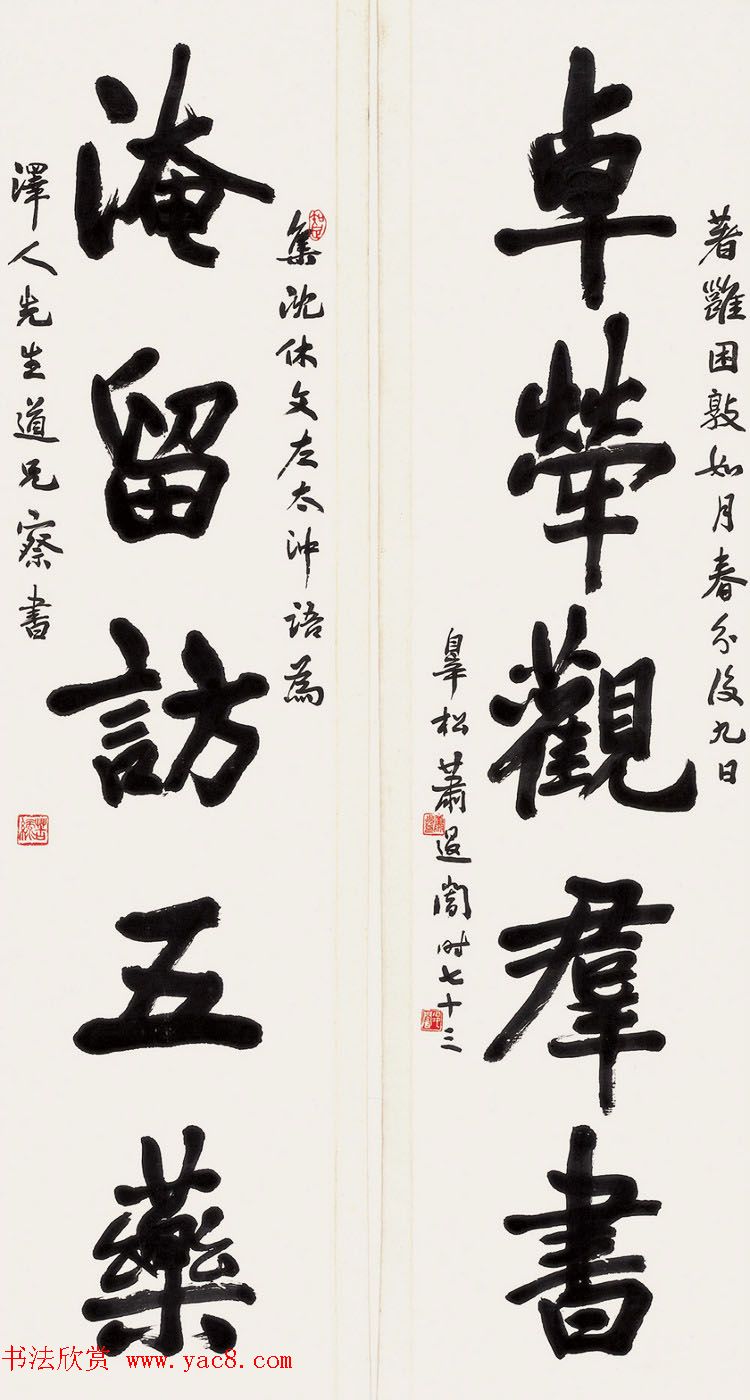 著雝困敦如月春分後九日
卓犖觀羣書
臯松蕭退闇时七十三
集沈休文左太沖語為
淹留訪五藥
澤人先生道兄察書
书法欣赏 www.yac8.com